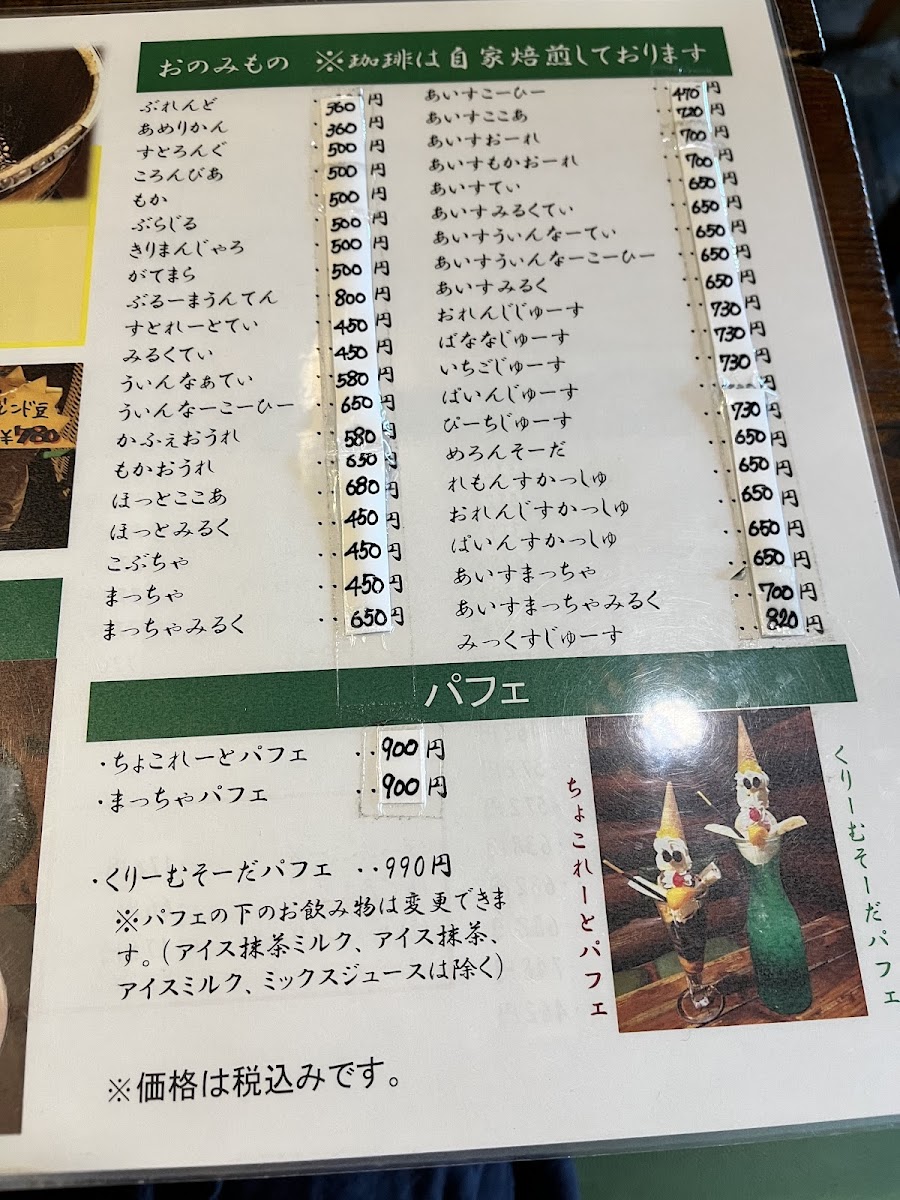 おのみもの ※珈琲は自家焙煎しております
ぶれんど ‥360円
あめりかん ‥360円
すとろんぐ ‥500円
ころんびあ ‥500円
もか ‥500円
ぶらじる ‥500円
きりまんじゃろ ‥500円
がてまら ‥500円
ぶるーまうんてん ‥800円
すとれーとてぃ ‥450円
みるくてぃ ‥450円
ういんなぁてぃ ‥580円
ういんなーこーひー ‥650円
かふぇおうれ ‥580円
もかおうれ ‥650円
ほっとここあ ‥680円
ほっとみるく ‥450円
こぶちゃ ‥450円
まっちゃ ‥450円
まっちゃみるく ‥650円
あいすこーひー ‥470円
あいすここあ ‥720円
あいすおーれ ‥700円
あいすもかおーれ ‥700円
あいすてぃ ‥650円
あいすみるくてぃ ‥650円
あいすういんなーてぃ ‥650円
あいすういんなーこーひー ‥650円
あいすみるく ‥650円
おれんじじゅーす ‥730円
ばななじゅーす ‥730円
いちごじゅーす ‥730円
ぱいんじゅーす 円
ぴーちじゅーす ‥730円
めろんそーだ ‥650円
れもんすかっしゅ ‥650円
おれんじすかっしゅ ‥650円
ぱいんすかっしゅ ‥650円
あいすまっちゃ ‥650円
あいすまっちゃみるく ‥700円
みっくすじゅーす ‥820円
ンド豆
¥780
パフェ
・ちょこれーとパフェ ‥900円
・まっちゃパフェ ‥900円
・くりーむそーだパフェ ‥990円
※パフェの下のお飲み物は変更できま
す。(アイス抹茶ミルク、アイス抹茶、
アイスミルク、ミックスジュースは除く)
ちょこれーとパフェ
くりーむそーだパフェ
※価格は税込みです。